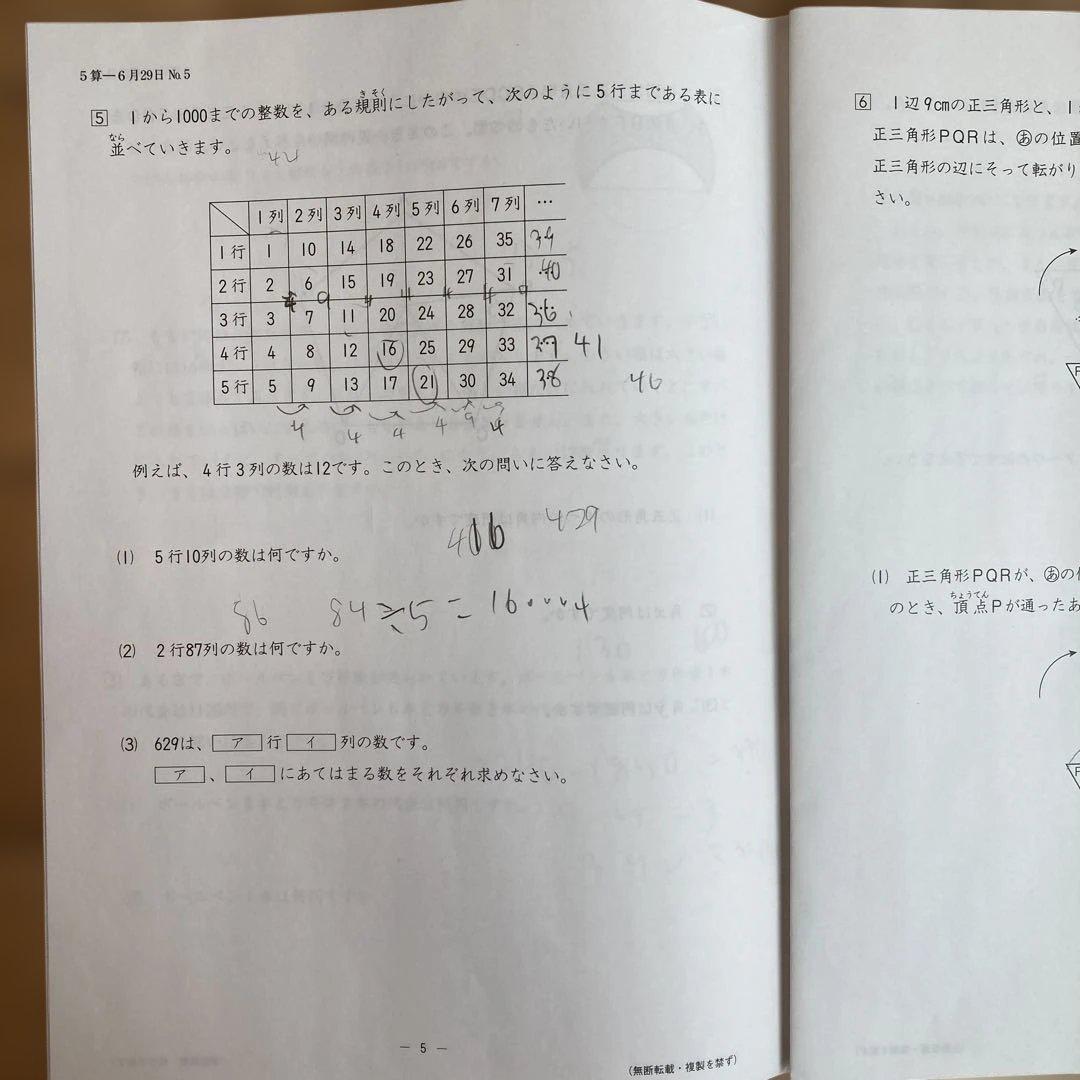 5算―6月29日 No.5
5 1から1000までの整数を、ある規則にしたがって、次のように5行まである表に
きそく
並べていきます。
なら
1列 2列 3列 4列 5列 6列 7列 …
1行 1 10 14 18 22 26 35 39
2行 2 6 15 19 23 27 31 40
3行 3 7 11 20 24 28 32 36
4行 4 8 12 16 25 29 33 37 41
5行 5 9 13 17 21 30 34 38 46
4 4 4 4 9 4
例えば、4行3列の数は12です。このとき、次の問いに答えなさい。
406 429
(1) 5行10列の数は何ですか。
86 84÷5=16…4
(2) 2行87列の数は何ですか。
(3) 629は、ア行イ列の数です。
ア、イにあてはまる数をそれぞれ求めなさい。
― 5 ―
(無断転載・複製を禁ず)
6 1辺9cmの正三角形と、1
正三角形PQRは、あの位置
正三角形の辺にそって転がり
さい。
(1) 正三角形PQRが、あの
のとき、頂点Pが通ったあ
ちょうてん